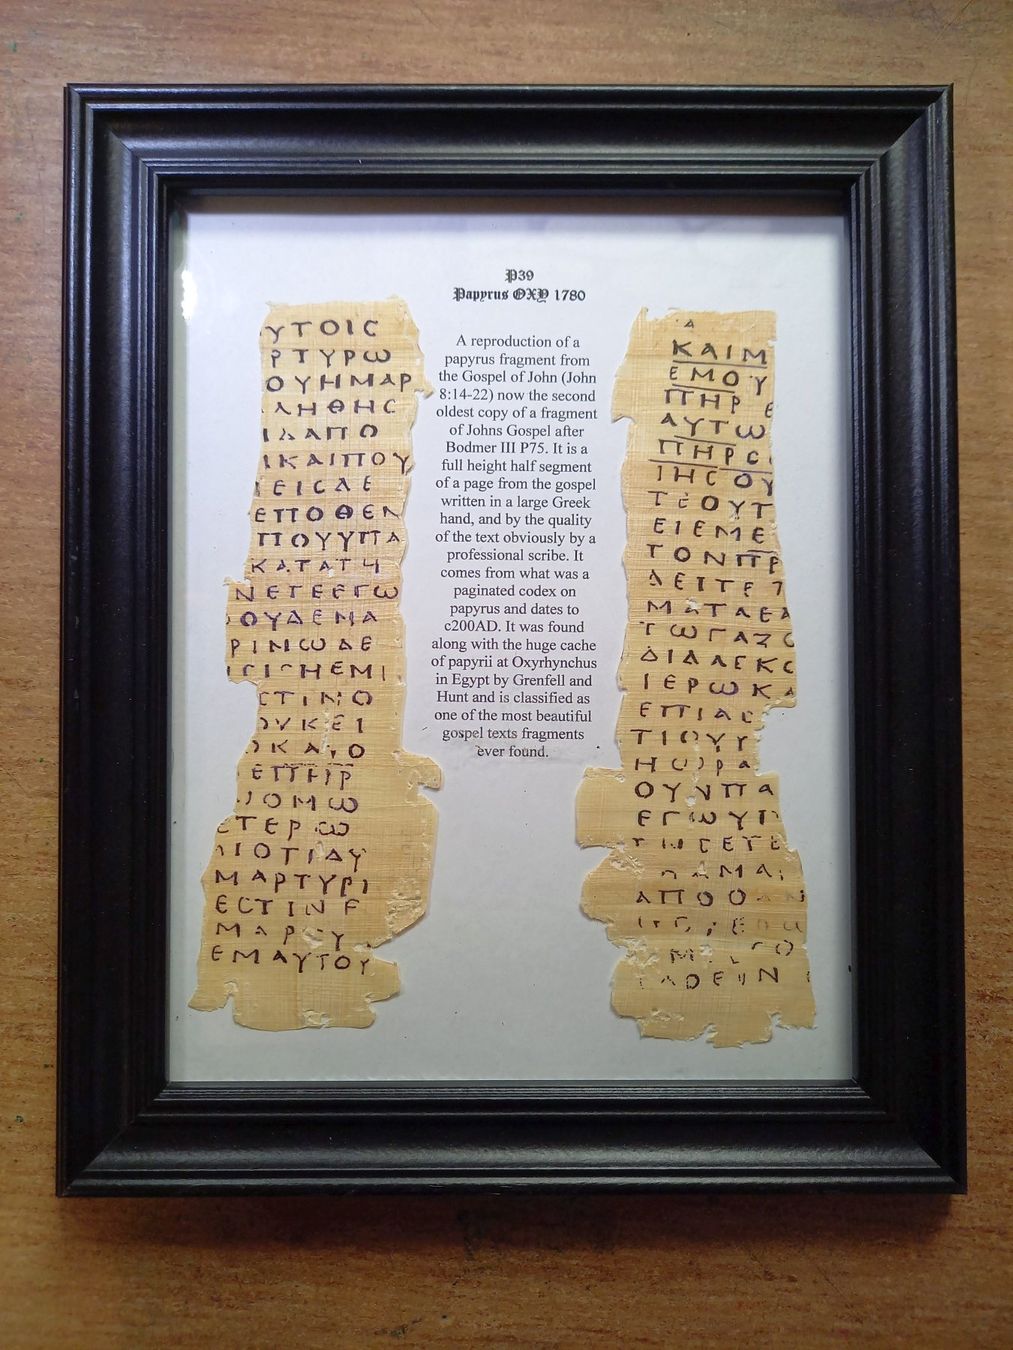 P39
Papyrus OXY 1780
ΥΤΟΙC
ΡΤΥΡΩ
ΟΥΗΜΑΡ
ΛΗΘΗC
ΙΛΑΠΟ
ΙΚΑΙΠΟΥ
ΕΙCΔΕ
ΕΠΟΘΕΝ
ΠΟΥΥΠΑ
ΚΑΤΑΤΗ
ΝΕΤΕΕΓΩ
ΟΥΔΕΝΑ
ΡΙΝΩΔΕ
ΗΕΜΙ
CΤΙΝΟ
ΟΥΚΕΙ
ΕΠΗΡ
ΝΟΜΩ
ΤΕΡΩ
ΙΟΤΙΔΥ
ΜΑΡΤΥΡΙ
ΕCΤΙΝΕ
ΜΑΡΤΥ
ΕΜΑΥΤΟΥ
A reproduction of a
papyrus fragment from
the Gospel of John (John
8:14-22) now the second
oldest copy of a fragment
of Johns Gospel after
Bodmer III P75. It is a
full height half segment
of a page from the gospel
written in a large Greek
hand, and by the quality
of the text obviously by a
professional scribe. It
comes from what was a
paginated codex on
papyrus and dates to
c200AD. It was found
along with the huge cache
of papyrii at Oxyrhynchus
in Egypt by Grenfell and
Hunt and is classified as
one of the most beautiful
gospel texts fragments
ever found.
ΚΑΙΜ
ΕΜΟΥ
ΠΗΡ Ε
ΑΥΤΩ
ΠΗΡCΟ
ΙΗC ΟΥ
ΤΕΟΥΤ
ΕΙΕΜΕ
ΤΟΝΠΡ
ΔΕΙΤΕΤ
ΜΑΤΑΕΛ
ΤΩΓΑΖΟ
ΔΙΔΑCΚΩ
ΙΕΡΩΚΑ
ΕΠΙΑC
ΤΙΟΥΥ
ΗΩΡΑ
ΟΥΝΠΑ
ΕΓΩΥΠ
ΤΗCΕΤΕ
ΑΜΑ
ΑΠΟΘΑΝ